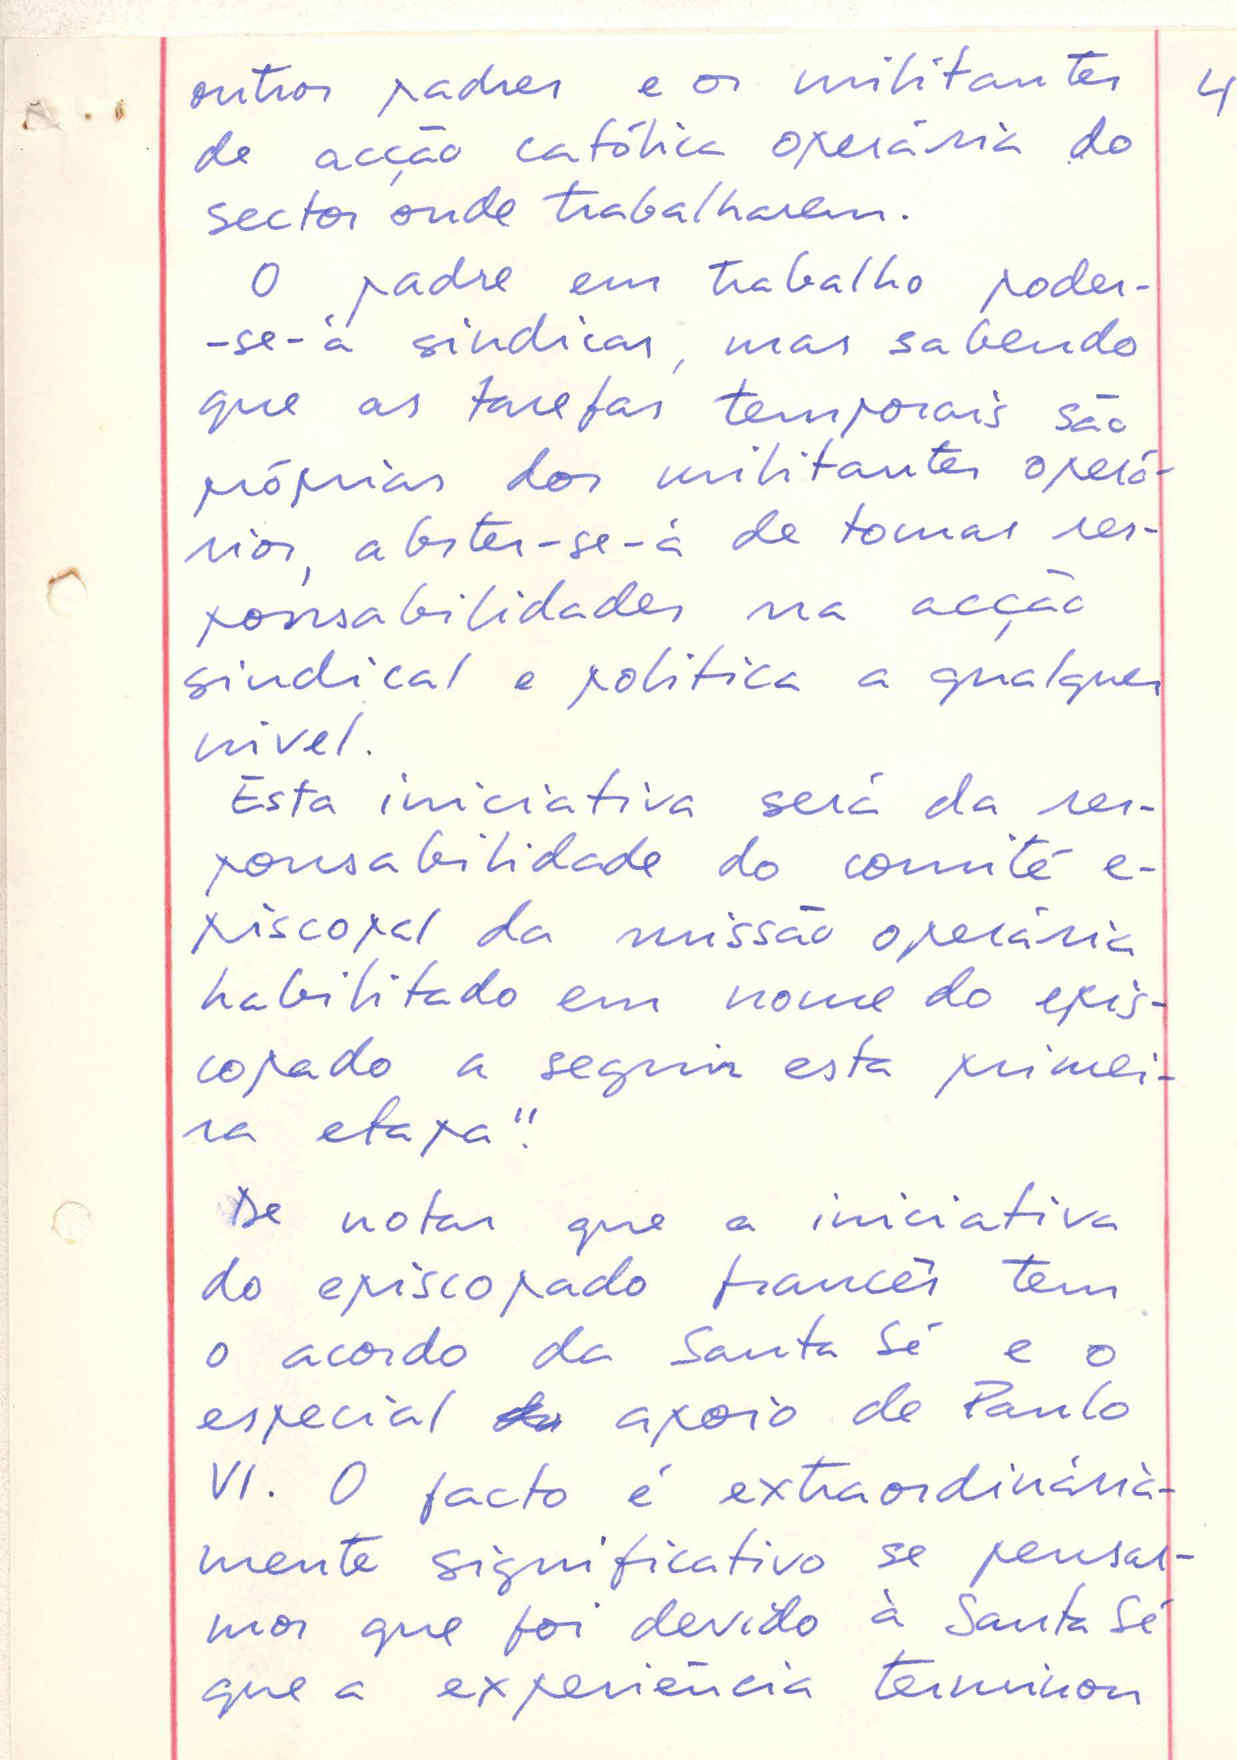 4
outros padres e os militantes
de acção católica operária do
sector onde trabalharem.
O padre em trabalho poder-
-se-á sindicar, mas sabendo
que as tarefas temporais são
próprias dos militantes operá-
rios, abster-se-á de tomar res-
ponsabilidades na acção
sindical e politica a qualquer
nivel.
Esta iniciativa será da res-
ponsabilidade do comité e-
piscopal da missão operária
habilitado em nome do epis-
copado a seguir esta primei-
ra etapa".
De notar que a iniciativa
do episcopado francês tem
o acordo da Santa Sé e o
especial apoio de Paulo
VI. O facto é extraordinária-
mente significativo se pensar-
mos que foi devido à Santa Sé
que a experiência terminou